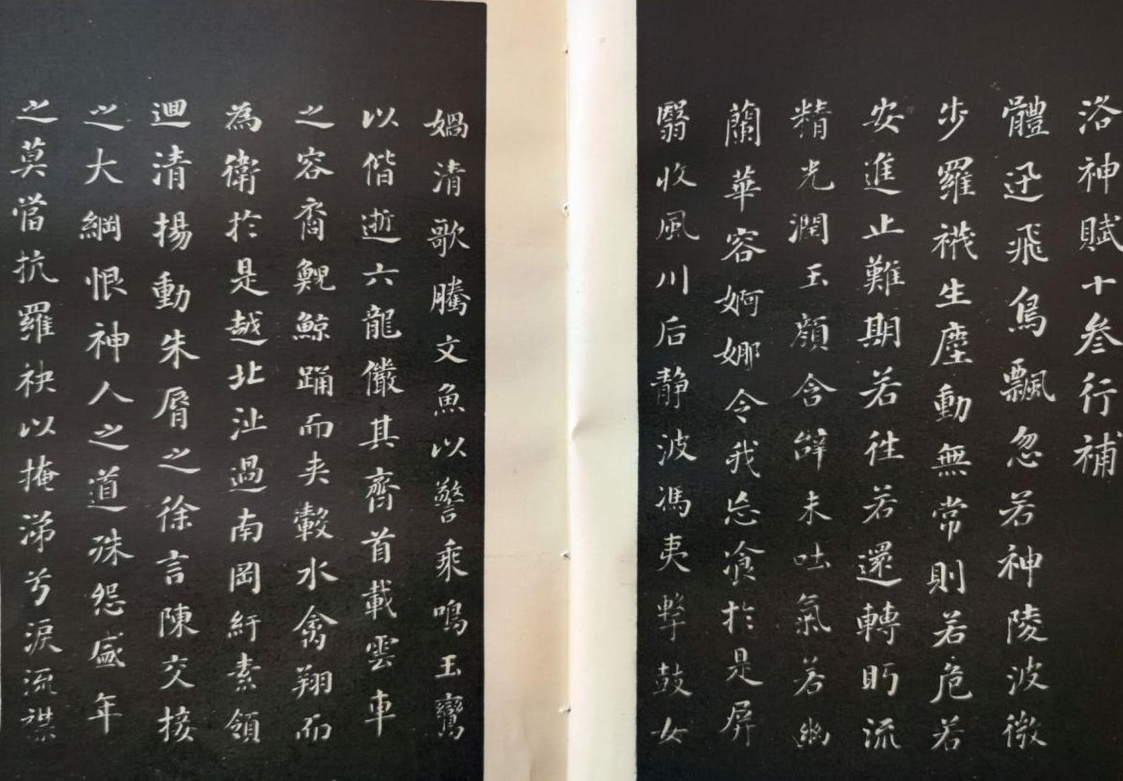 洛神賦十叄行補
體迅飛鳥飄忽若神陵波微
步羅襪生塵動無常則若危若
安進止難期若往若還轉眄流
精光潤玉顏含辭未吐氣若幽
蘭華容婀娜令我忘飡於是屏
翳收風川后静波馮夷擊鼓女
媧清歌騰文魚以警乘鳴玉鸞
以偕逝六龍儼其齊首載雲車
之容裔鯢鯨踊而夾轂水禽翔而
為衛於是越北沚過南岡紆素領
迴清揚動朱脣之徐言陳交接
之大綱恨神人之道殊怨盛年
之莫當抗羅袂以掩涕兮淚流襟